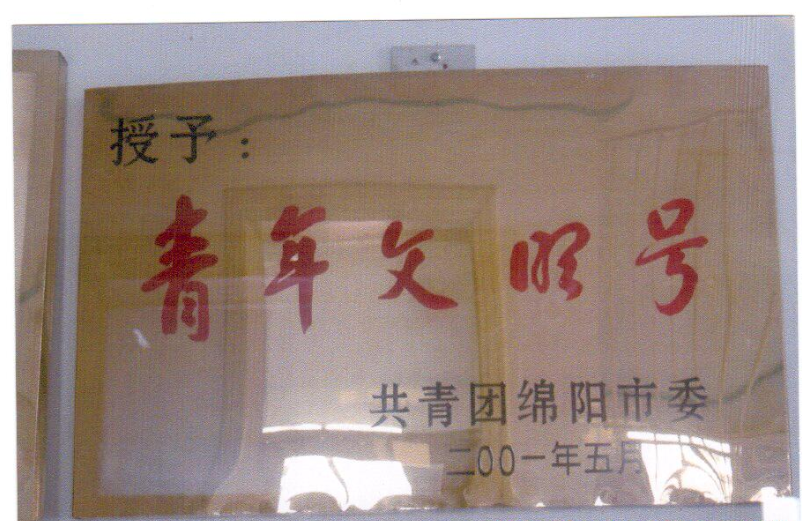 授予：
青年文明号
共青团绵阳市委
二00一年五月